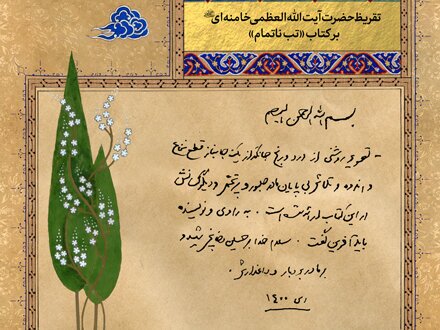 تقریظ حضرت آیت الله العظمی خامنه ای
بر کتاب «تب ناتمام»
بسم الله الرحمن الرحیم
- تصویر روشنی از درد و رنج جانکاه از یک جانباز قطع نخاع
و اندوه و تلاش بی پایان مادر صبور و پرتحمل و دیگر کسانش
در این کتاب ارائه شده است. به راوی و نویسنده
باید آفرین گفت. سلام خدا بر حسین شهید و
بر مادر بردبار و
دی ۱۴۰۰